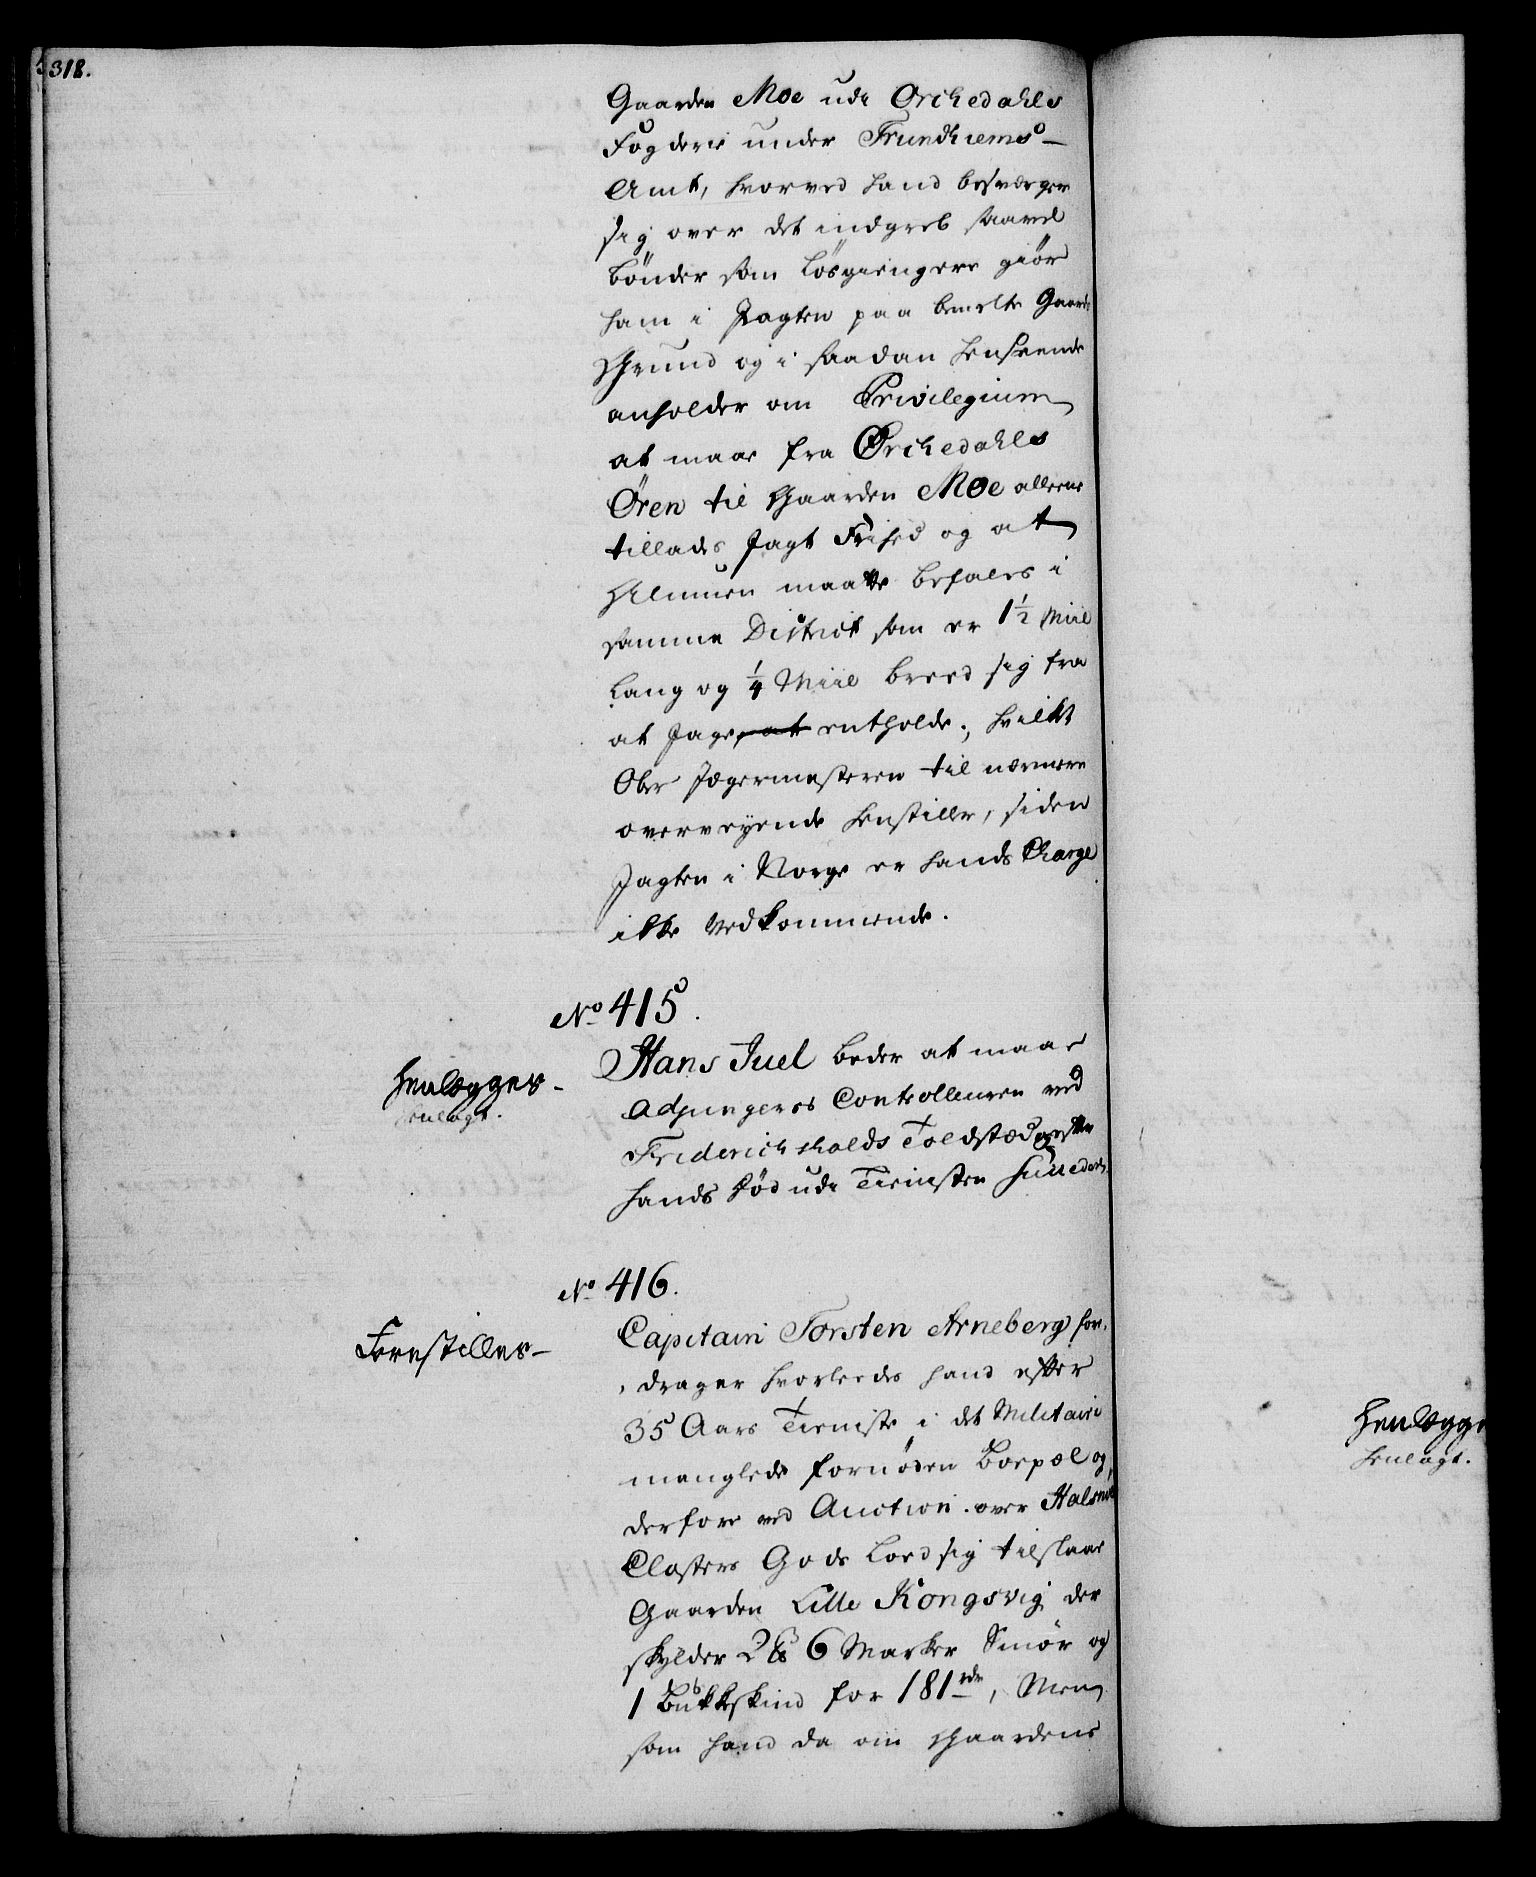 318.
Gaarden Moe udi Orchedahls
Fogderie under Trundhiems-
Amt, hvorved hand besværger
sig over det indgreb saavel
bönder som lösgiengere giör
ham i Jagten paa bemelte Gaards
Grund og i saadan henseende
anholder om Privilegium
at maae fra Orchedahls
Ören til Gaarden Moe alleene
tillades Jagt Frihed og at
Almuen maatte befales i
samme District som er 1½ Miil
lang og ¼ Miil breed sig fra
at Jage at entholde; hvilket
Ober Jægermesteren til nærmere
overveyende henstiller, siden
Jagten i Norge er hands Charge
ikke vedkommende.
No 415.
Hans Juel beder at maae
henlægges-
adjungeres Controlleuren ved
henlagt.
Friderichshalds Toldstæd efter
hands död udi Tienisten
No 416.
Capitain Torsten Arneberg for-
Forestilles-
drager hvorleedes hand efter
35 Aars Tieniste i det Militaire
manglede fornöden Boepæl og
derfore ved Auction over Halsnöe
Closters Gods loed sig tilslaae
Gaarden Lille Kongsvig der
skylder 2 6 Marker Smör og
1 Bukkeskind for 181 rdr, Men
som hand da om Gaardens
henlægge
henlagt.